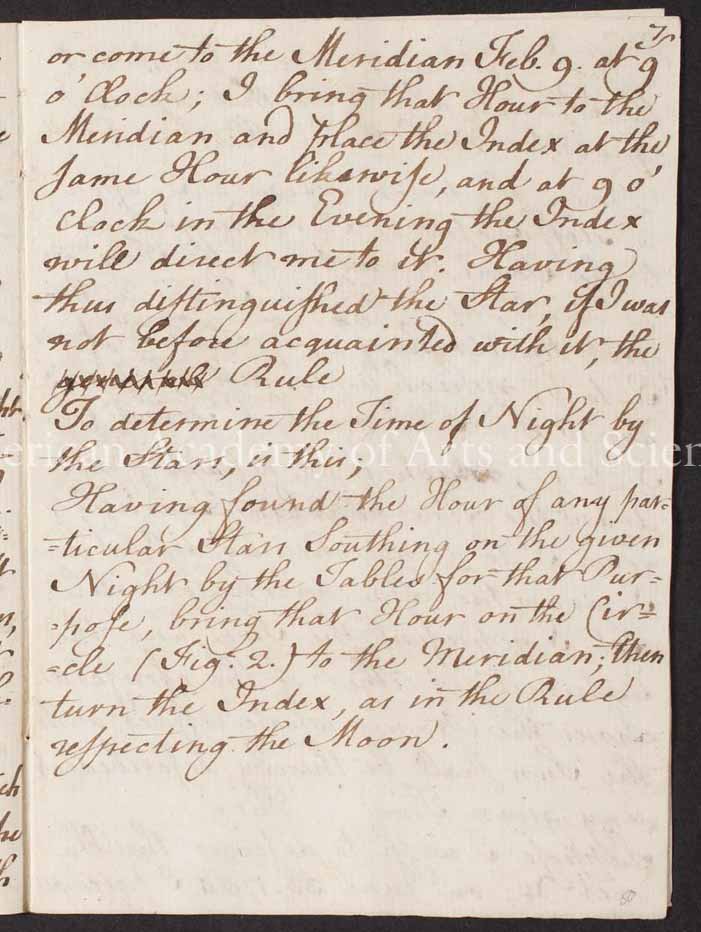 7
or come to the Meridian Feb. 9. at 9
o'Clock; I bring that Hour to the
Meridian and place the Index at the
same Hour likewise, and at 9 o'
clock in the Evening the Index
will direct me to it. Having
thus distinguished the Star, if I was
not before acquainted with it, the
Rule
To determine the Time of Night by
the Stars, is this;
American Academy of Arts and Scien
Having found the Hour of any par=
=ticular Stars Southing on the given
Night by the Tables for that Pur=
=pose, bring that Hour on the Cir=
=cle (Fig. 2.) to the Meridian; then
turn the Index, as in the Rule
respecting the Moon.